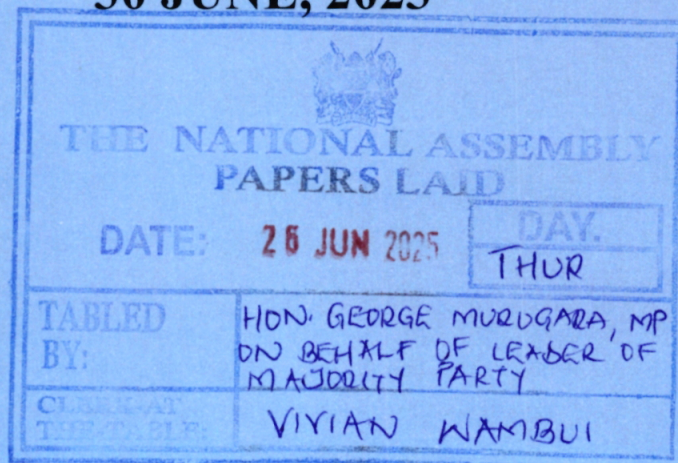 30 JUNE, 2023
THE NATIONAL ASSEMBLY
PAPERS LAID
DATE: 26 JUN 2025
DAY.
THUR
TABLED
BY:
HON. GEORGE MURUGARA, MP
ON BEHALF OF LEADER OF
MAJORITY PARTY
CLERK-AT
THE-TABLE:
VIVIAN WAMBUI